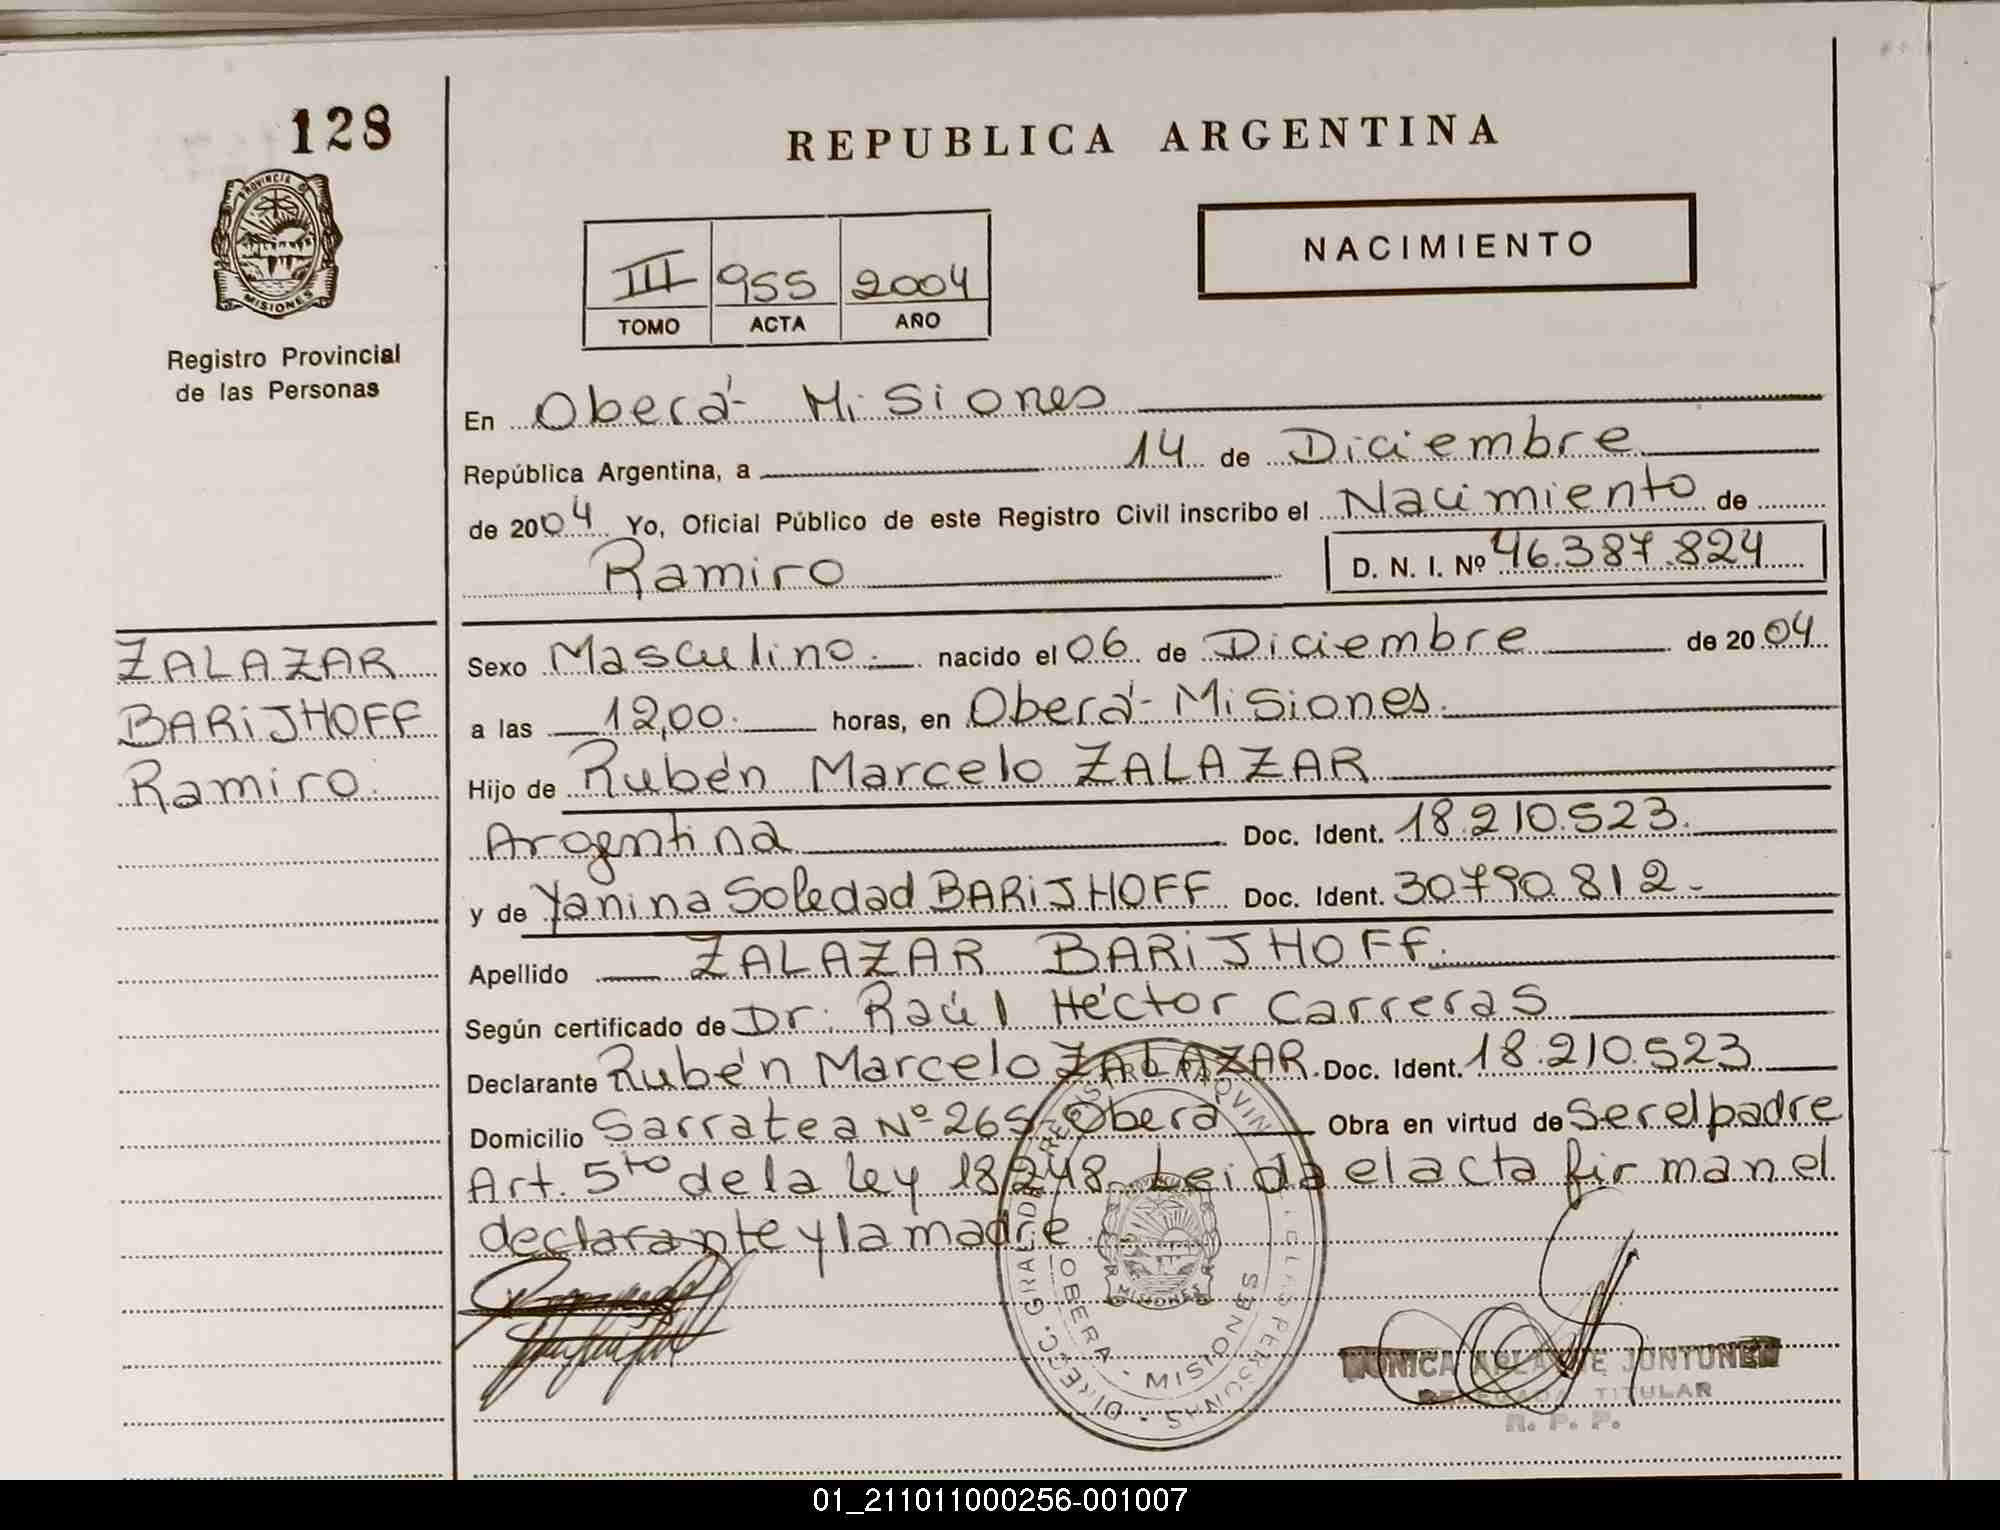 128
PROVINCIA DE
MISIONES
Registro Provincial
de las Personas
REPUBLICA ARGENTINA
NACIMIENTO
III 955 2004
TOMO ACTA AÑO
En Oberá - Misiones
República Argentina, a 14 de Diciembre
de 2004 Yo, Oficial Público de este Registro Civil inscribo el Nacimiento de
Ramiro D. N. I. Nº 46.387.824
ZALAZAR
BARIJHOFF
Ramiro.
Sexo Masculino. nacido el 06 de Diciembre de 2004
a las 12,00. horas, en Oberá - Misiones.
Hijo de Rubén Marcelo ZALAZAR
Argentina Doc. Ident. 18.210.523.
y de Yanina Soledad BARIJHOFF Doc. Ident. 30790.812.-
Apellido ZALAZAR BARIJHOFF.
Según certificado de Dr. Raúl Héctor Carreras
Declarante Rubén Marcelo ZALAZAR. Doc. Ident. 18.210.523
Domicilio Sarratea Nº 265 Oberá Obra en virtud de Ser el padre
Art. 5to de la ley 18248. Leida el acta firman el
declarante y la madre.
OBERA - MISIONES
MISIONES
JUNTUNEN
DELEGADA TITULAR
R. P. P.
01_211011000256-001007